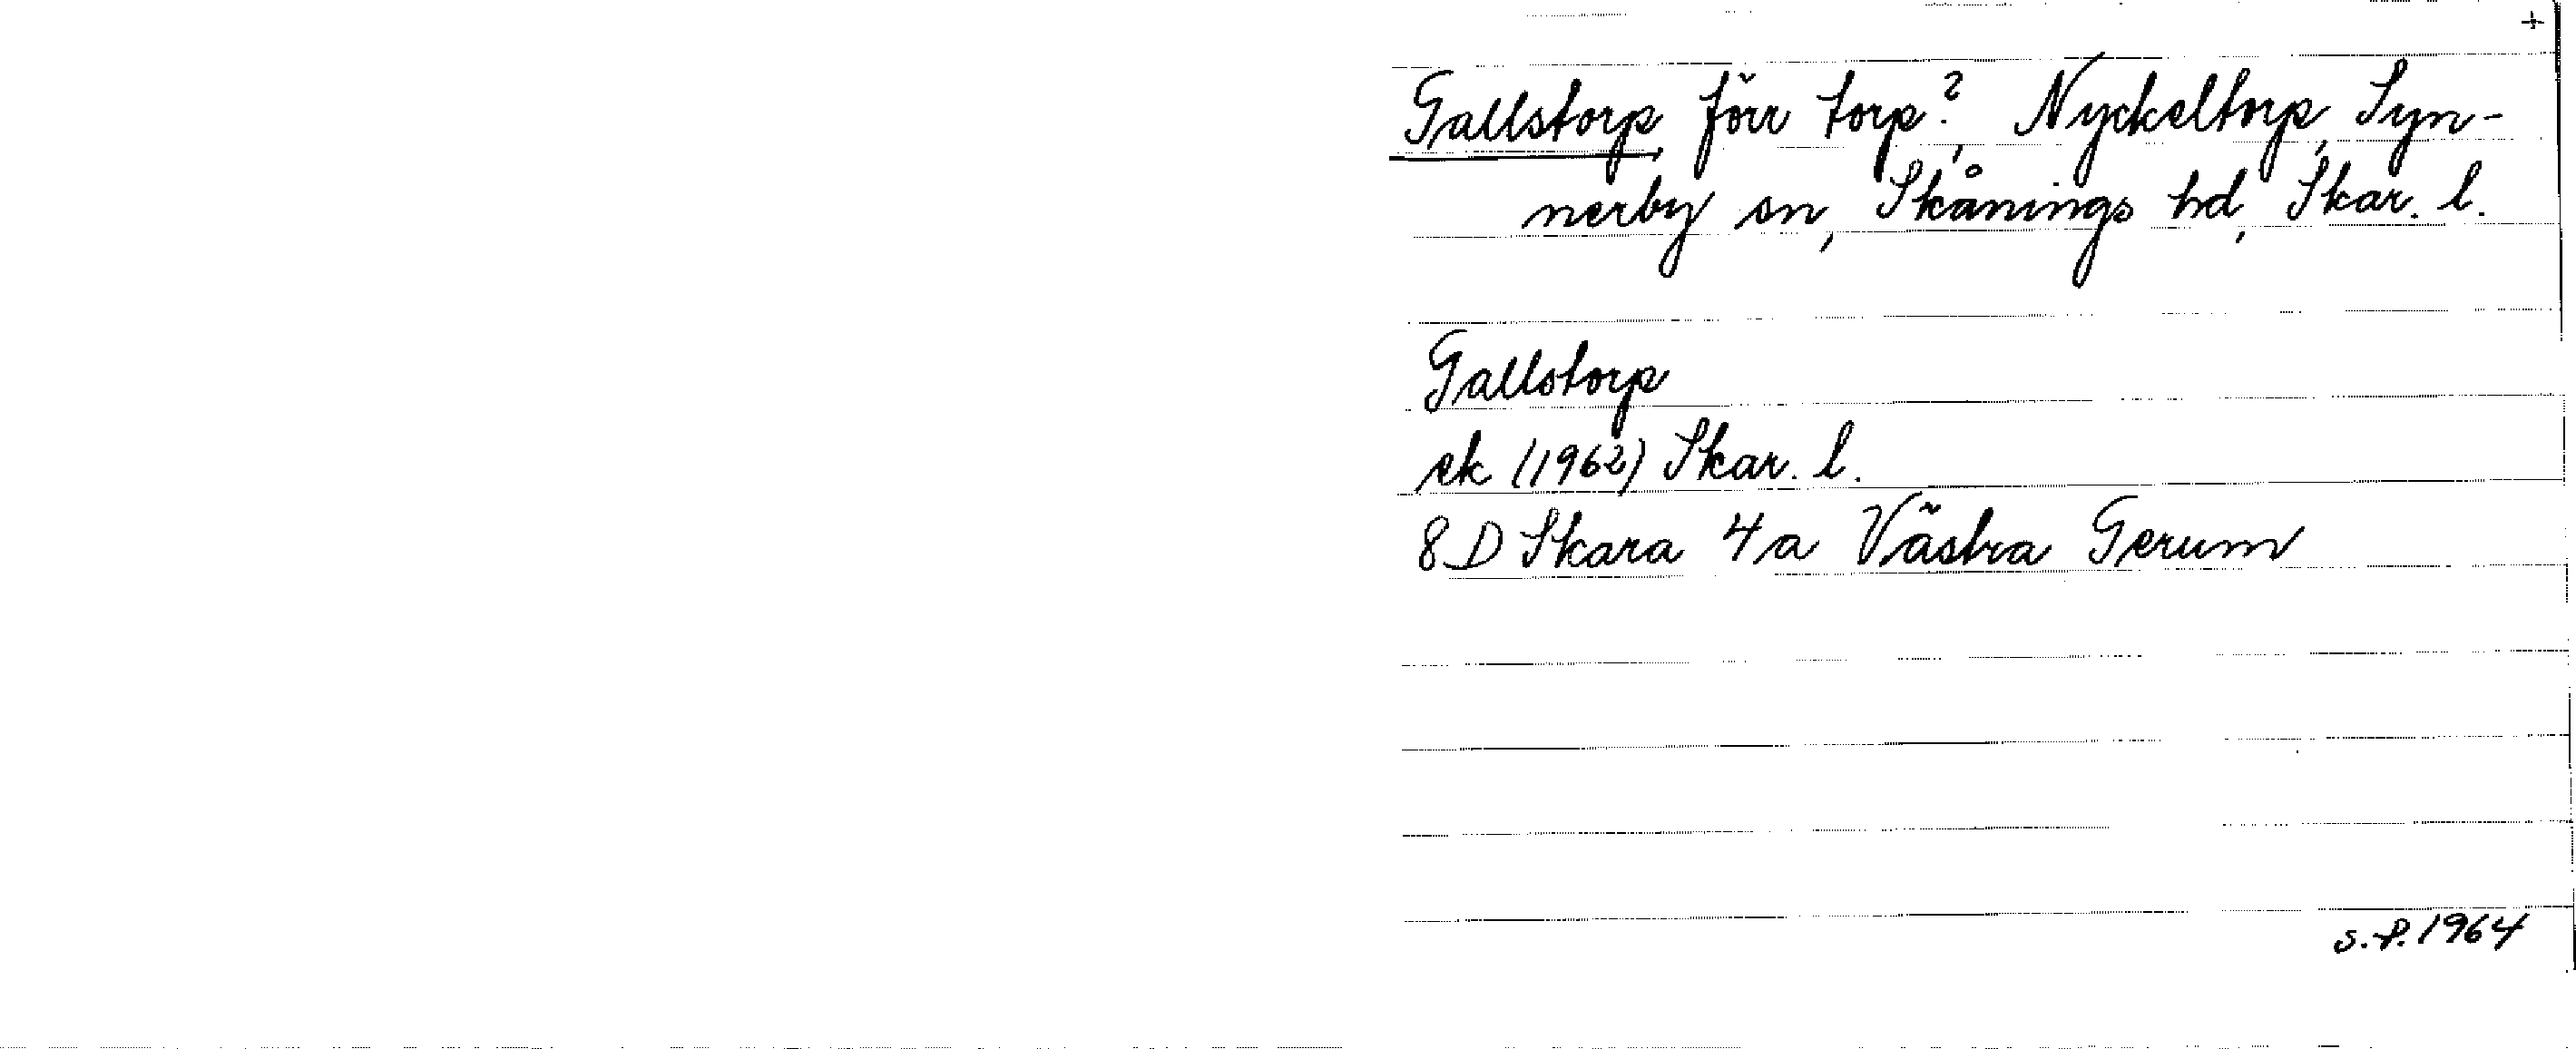 +
Gallstorp, förr torp?, Nyckeltorp, Syn-
nerby sn, Skånings hd, Skar. l.
Gallstorp
ek (1962) Skar. l.
8D Skara 4a Västra Gerum
s.f. 1964